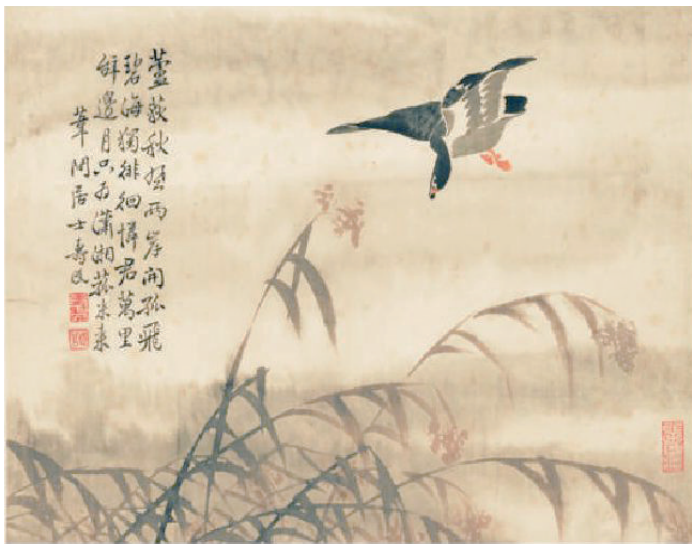 蘆荻秋風兩岸開孤飛
碧海獨徘徊憐君萬里
辭邊月只為瀟湘菰米來
葦間居士壽民